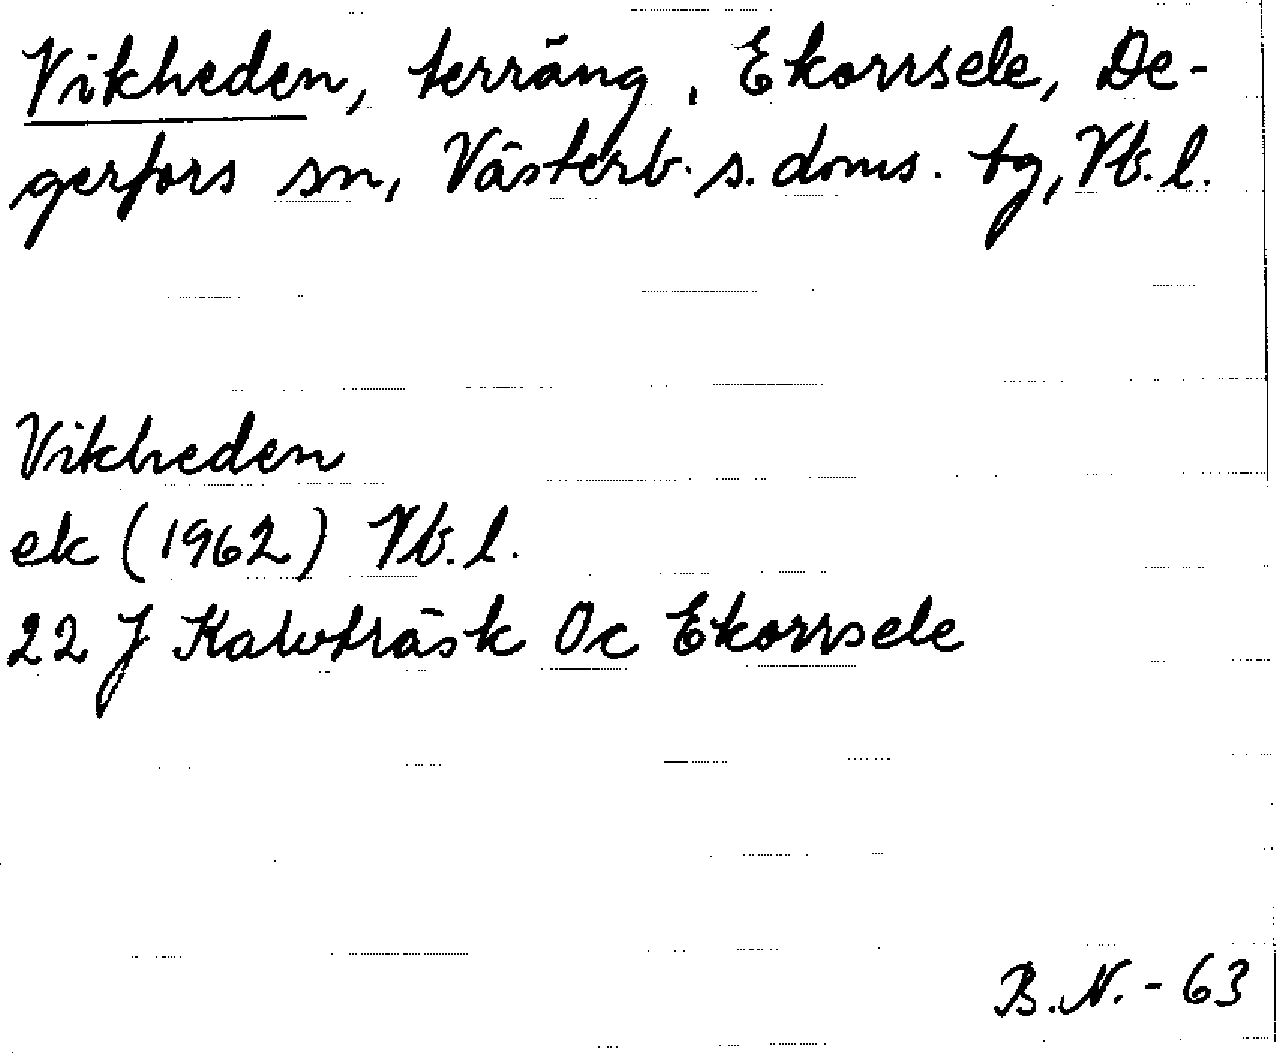 Vikheden, terräng, Ekorrsele, De-
gerfors sn, Västerb. s. doms. tg, Vb. l.
Vikheden
ek (1962) Vb. l.
22 J Kalvträsk 0c Ekorrsele
B.N. - 63